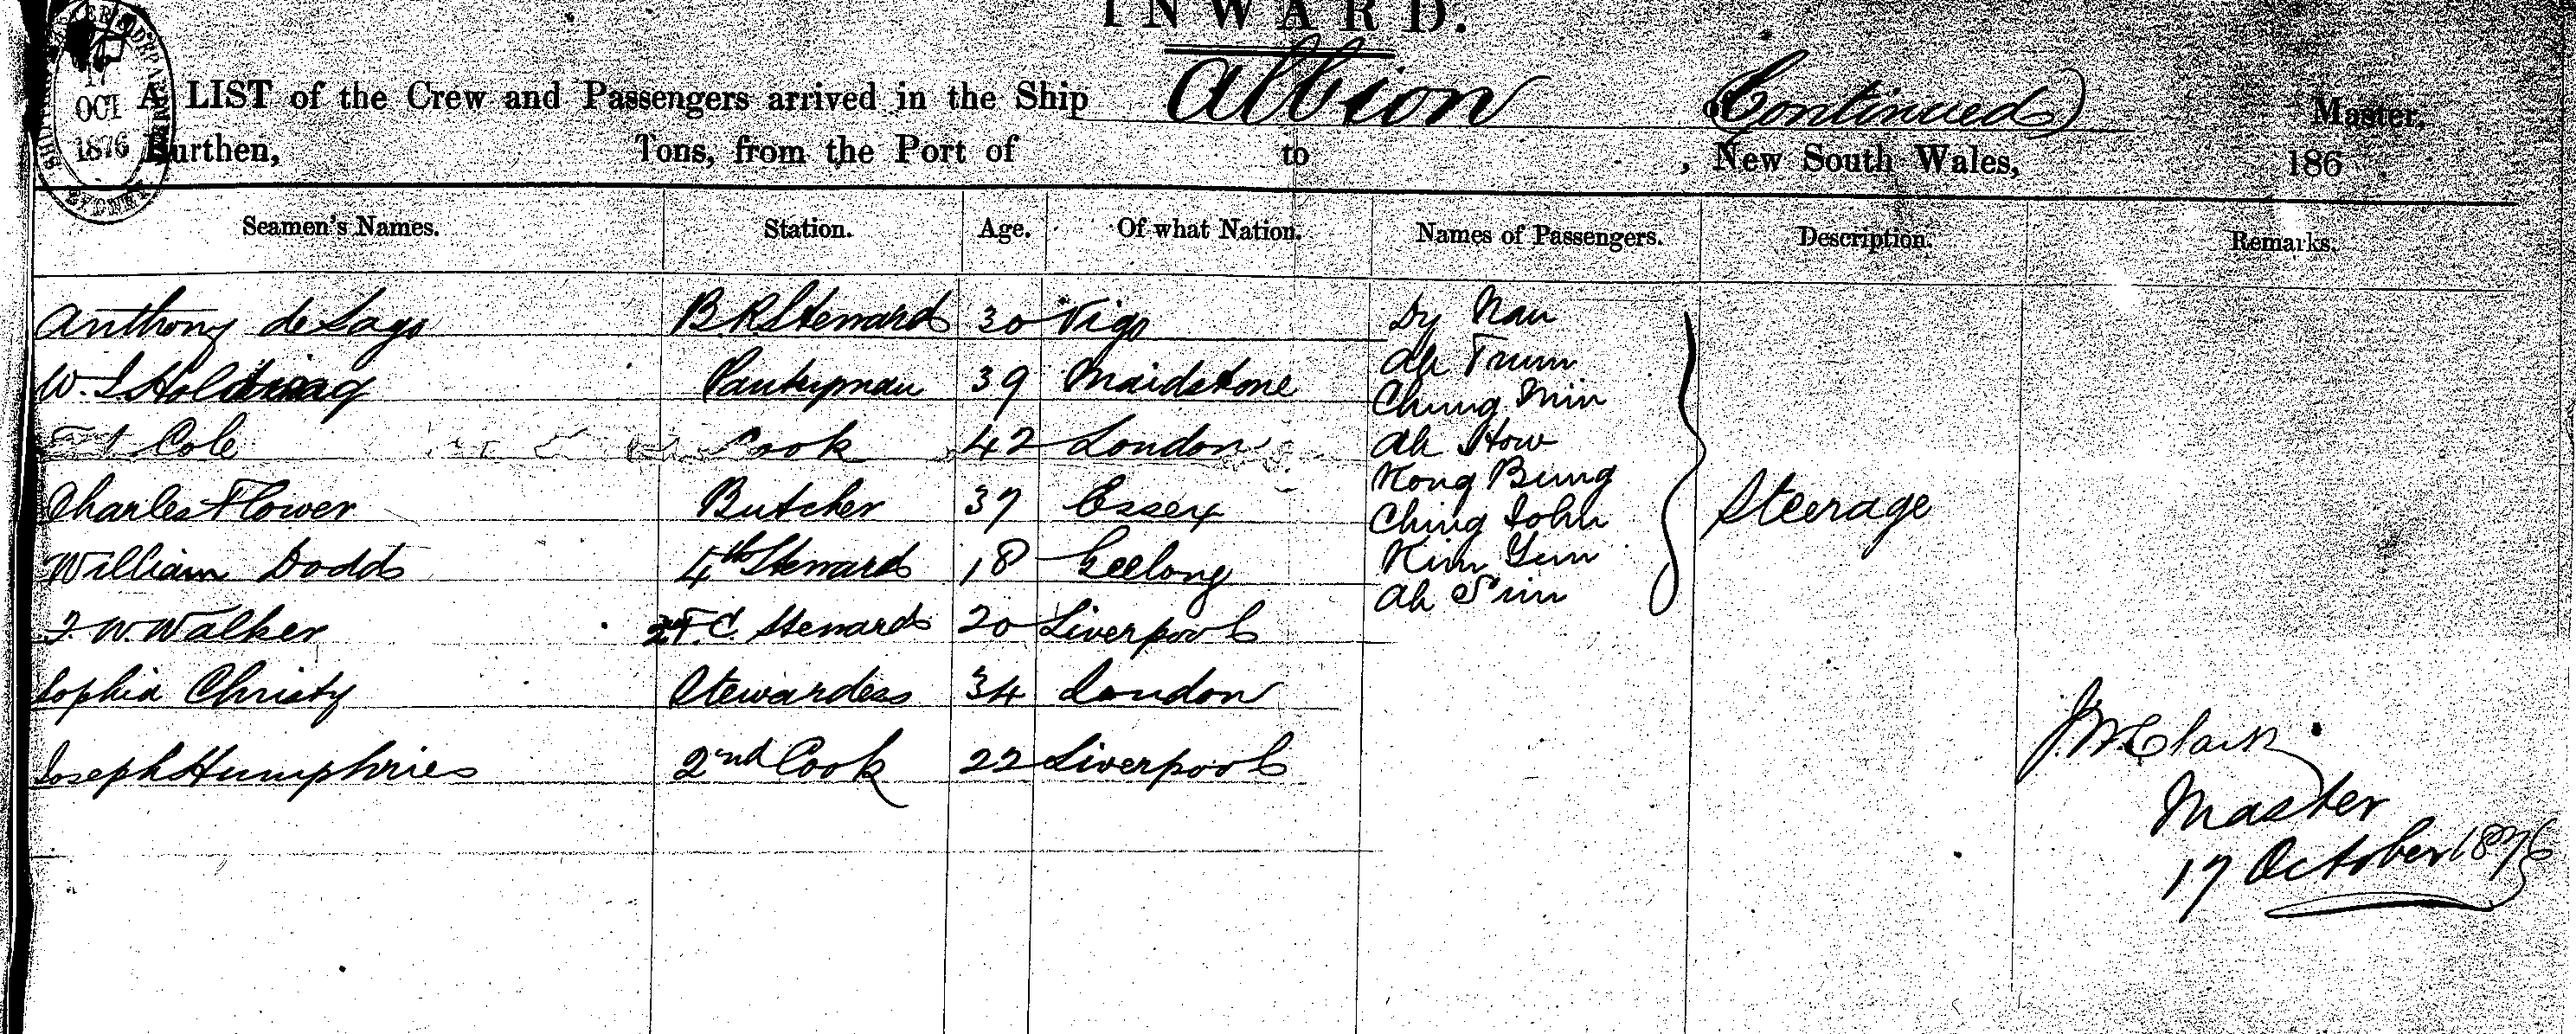 INWARD.
17
OCT
1876
SYDNEY
A LIST of the Crew and Passengers arrived in the Ship Albion (Continued) Master,
Burthen, Tons, from the Port of to , New South Wales, 186
Seamen's Names. Station. Age. Of what Nation. Names of Passengers. Description. Remarks.
Anthony de Lago B R Steward 30 Vigo
W. Pantryman 39 Maidstone
Cole Cook 42 London
Charles Flower Butcher 37 Essex
William Dodd 4th Steward 18 Geelong
W. Walker F. C. Steward 20 Liverpool
Sophia Christy Stewardess 34 London
Joseph Humphries 2nd Cook 22 Liverpool
Dy Nau
Ah Trum
Chung Min
Ah How
Kong Bung
Ching John
Kim Yum
Ah Sim
Steerage
J. W. Clark
Master
17 October 1876